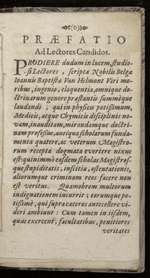 PRÆFATIO
Ad Lectores Candidos.
PRODIERE dudum in lucem, studio-
si Lectores, scripta Nobilis Belgæ
Ioannis Baptistæ Van Helmont Viri mo-
ribus, ingenio, eloquentia, omnique do-
ctrinarum genere præstantis summique
laudandi; qui in physicis potissimum,
Medicis, atque Chymicis disciplinis no-
vam, inauditam, mirandamque doctri-
nam professus, antiqua scholarum funda-
menta quatere, ac veterum Magistro-
rum recepta dogmata evertere nixus
est: quinimmo easdem scholas, Magistros-
que stupiditatis, inscitiæ, ostentationis,
aliorumque criminum reos facere non
est veritus. Quamobrem multorum
indignationem incurrit; eorumque po-
tissimo, qui supra ceteros antecellere vi-
deri ambiunt: Cum tamen in iisdem,
quas exercent, facultatibus, penitiores
veritates